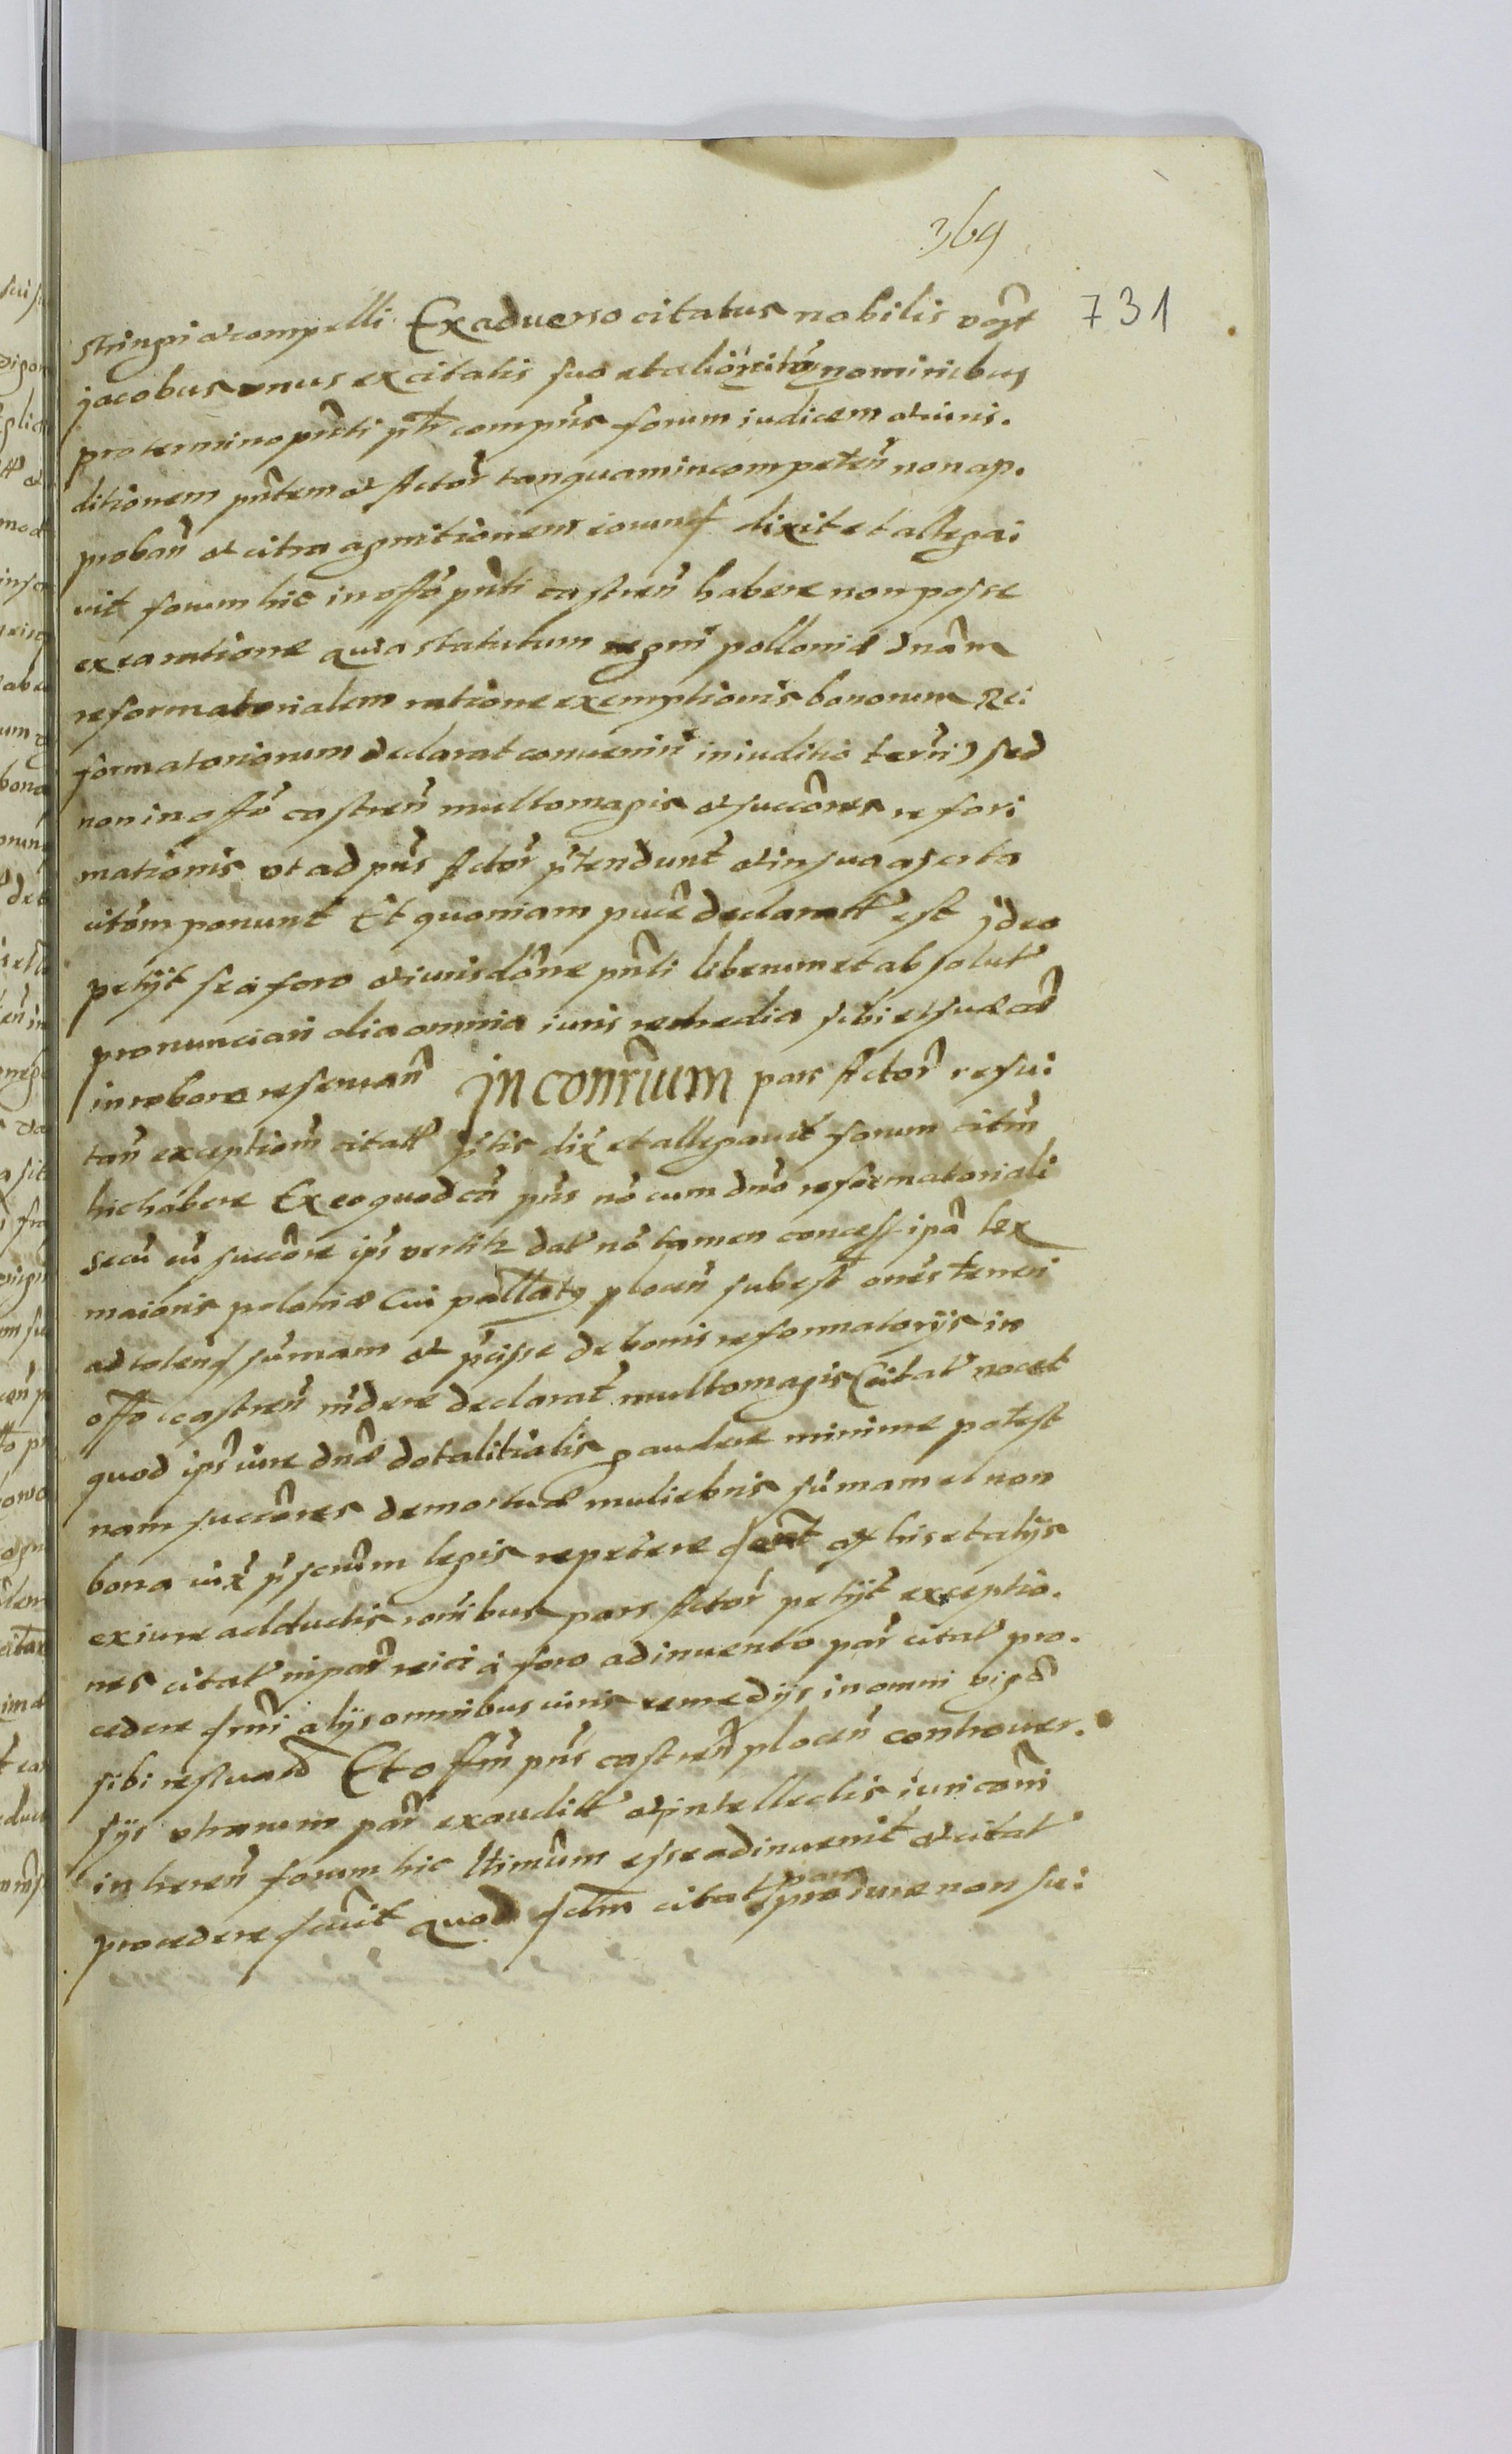 369
731
stringi et compelli Ex aduerso citatus nobilis
jacobus vnus ex citatis suo et nominibus
pro termino pnti compns forum iudicem et iuris.
ditionem pntem et Actor tanquam incompeten non ap.
proban et citra agnitionem eorund dixit et allega:
uit forum hic in offo pnti castren habere non posse
ex ea ratione quia statutum regni polloniæ dnam
reformatorialem ratione exemptionis bonorum Re:
formatoriorum declarat conueniri in iuditio terri) sed
non in offo castren multo magis et succores refor:
mationis vt ad pns Actor ptendunt et in sua aserta
citom ponunt Et quoniam declaratt est jdeo
petijt se a foro et iurisdone pnti liberum et absolut
pronunciari alia omnia iuris remedia sibi et suæ
in robore reseruan In conrium pars Actor refu:
tan exceptiom citatt dix et allegauit forum citm
hic habere Ex eo quod ca pns no cum dno reformatoriali
secu cu succore ips vertitr dat no tamen concess ipa lex
maioris poloniæ Cui pallatq plocen subest ones teneri
ad tolend sumam et pcisse de bonis reformatorijs in
offo castren rndere declarat multo magis Citat nocet
quod ips iure dnæ dotalitialis gaudere minime potest
nam succores demortuæ muliebris sumam et non
bona legis repetere et his et alijs
ex iure adductis ronibus pars Actor petijt exceptio.
nes citat reici a foro adinuento par citat pro.
cedere alijs omnibus iuris remedijs in omni vigo
sibi resuatd Et offm pns castren plocen controuer.
sijs vtrarum par exauditt et intellectis iuri coni
in heren forum hic ltimum esse adinuenit et citat
procedere quod citat pars iure non su: